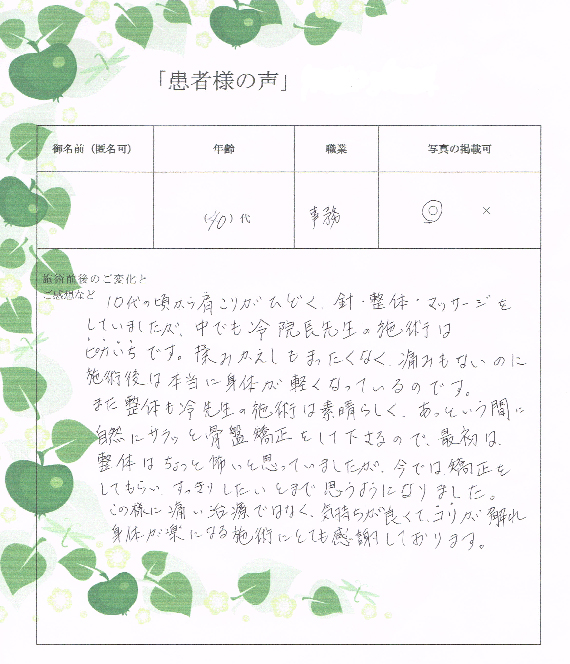 「患者様の声」
御名前（匿名可） 年齢 職業 写真の掲載可
（40）代 事務 ◎ ×
施術前後のご変化と
ご感想など
10代の頃から肩こりがひどく、針・整体・マッサージを
していましたが、中でも冷院長先生の施術は
ピカいちです。揉みかえしもまったくなく、痛みもないのに
施術後は本当に身体が軽くなっているのです。
また整体も冷先生の施術は素晴らしく、あっという間に
自然にサラッと骨盤矯正をして下さるので、最初は、
整体はちょっと怖いと思っていましたが、今では、矯正を
してもらい、すっきりしたいとまで思うようになりました。
この様に痛い治療ではなく、気持ちが良くて、コリが解れ
身体が楽になる施術にとても感謝しております。